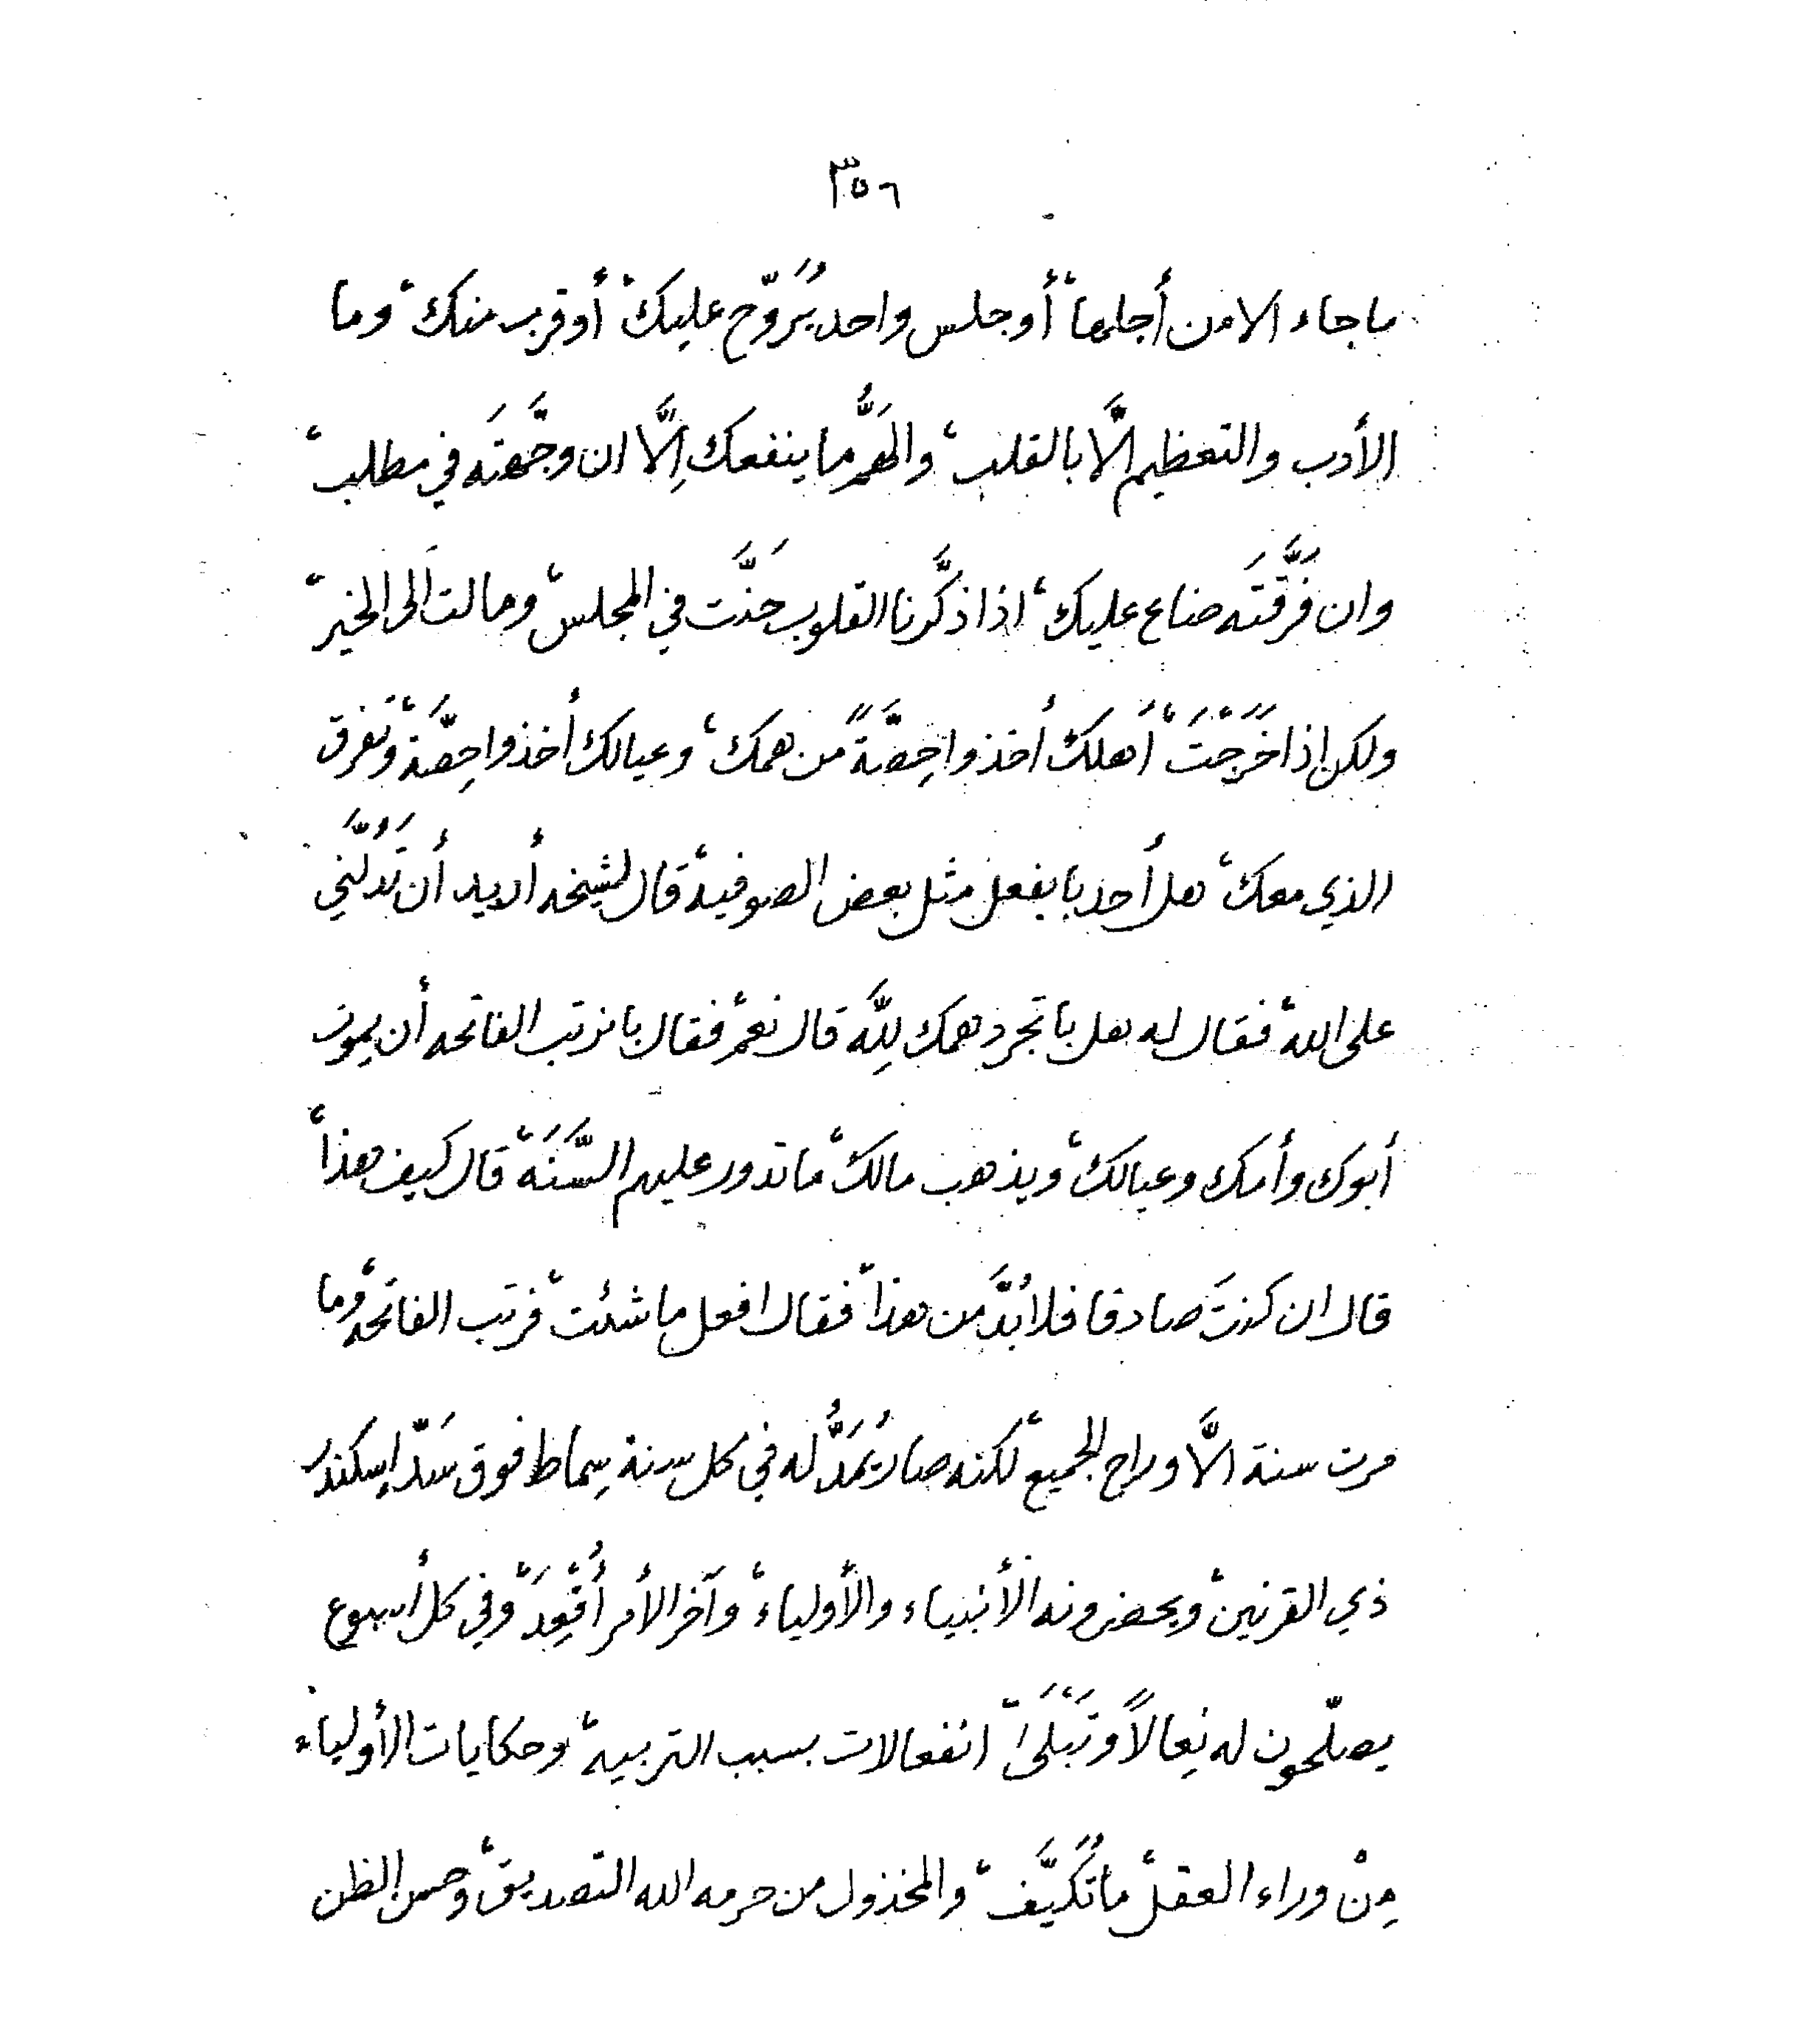 ٣٥٦
ما جاء الا من أجلها، أو جلس واحد يُرَوّح عليك، أو قرب منك، وما
الأدب والتعظيم الَّا بالقلب، والهَمُّ ما ينفعك إِلَّا ان وجَّهتَه في مطلب،
وان فَرَّقْتَه ضاع عليك، اذا ذكَّرنا القلوب حَنَّت في المجلس، ومالت الى الخير،
ولكن إذا خَرَجْتَ، أهلك أخذوا حِصَّةً من همك، وعيالك أخذوا حِصَّة، وتَفرق
الذي معك، هل أحد با يفعل مثل بعض الصوفية، قال لشيخه أريد أن تَدُلَّني
على الله، فقال له هل با تجرد همك لِلَّه قال نعم، فقال با نرتب الفاتحه أن يموت
أبوك وأمك وعيالك، ويذهب مالك، ما تدور عليهم السَّنَة، قال كيف هذا،
قال ان كنتَ صادقا فلا بُدَّ من هذا، فقال افعل ما شئت، فرتب الفاتحه، وما
مرت سنة الَّا وراح الجميع، لكنه صار يُمَدُّ له في كل سنة سِماط فوق سَدّ إسكندر
ذي القرنين، ويحضرونه الأنبياء والأولياء، وآخر الأمر أُقْعِدَ، وفي كل أسبوع
يصلّحون له نِعالاً وتَبْلَى، انفعالات بسبب التربية، وحكايات الأولياء
مِنْ وراء العقل، ما تُكَيَّف، والمخذول من حرمه الله التصديق، وحسن الظن